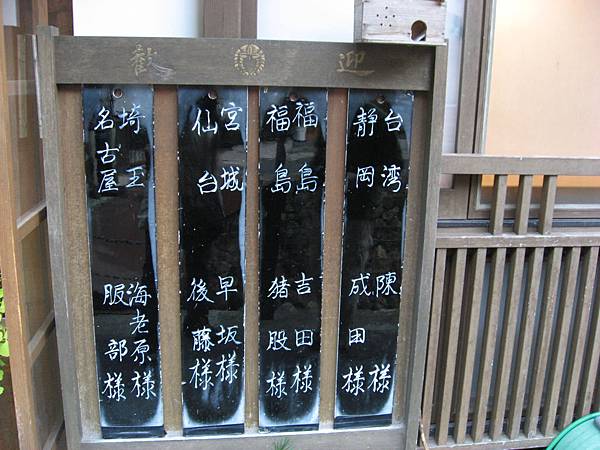 歓迎
台湾 陳様
静岡 成田様
福島 吉田様
福島 猪股様
宮城 早坂様
仙台 後藤様
埼玉 海老原様
名古屋 服部様